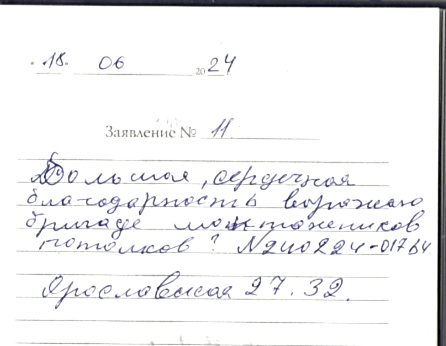 "18" 06 2024
Заявление № 11
Большая, сердечная
благодарность выражаю
бригаде монтажеников
потолков? N240224-01764
Ярославская 27.32.